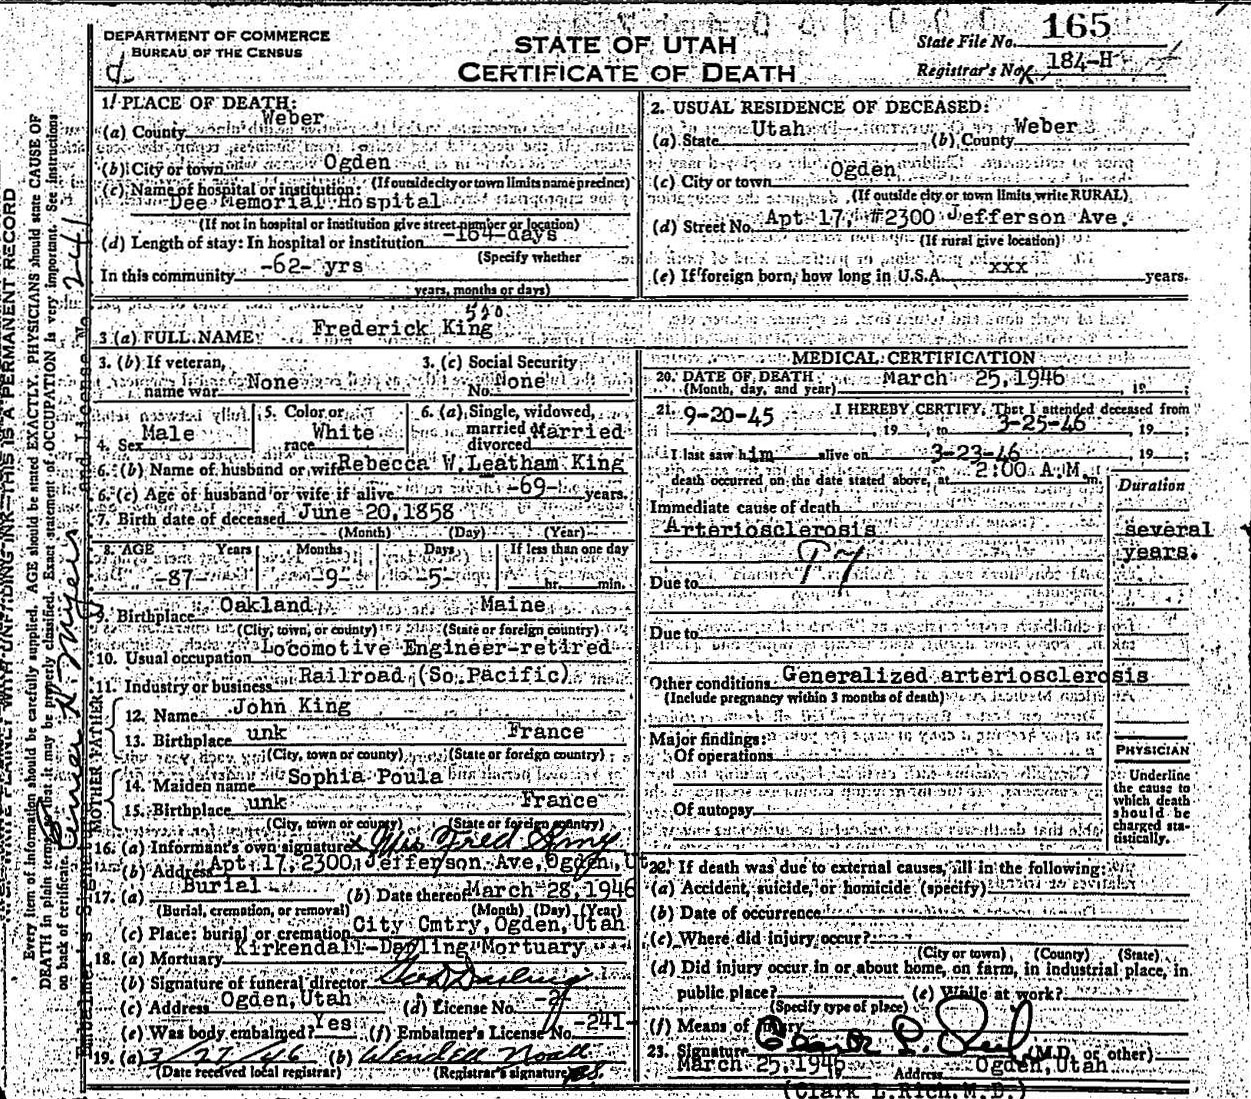 DEPARTMENT OF COMMERCE
BUREAU OF THE CENSUS
STATE OF UTAH
CERTIFICATE OF DEATH
State File No. 165
Registrar's No. 184-H
1. PLACE OF DEATH:
(a) County Weber
(b) City or town Ogden
(If outside city or town limits name precinct)
(c) Name of hospital or institution:
Dee Memorial Hospital
(If not in hospital or institution give street number or location)
(d) Length of stay: In hospital or institution -164-days
(Specify whether
In this community -62- yrs
years, months or days)
2. USUAL RESIDENCE OF DECEASED:
(a) State Utah (b) County Weber
(c) City or town Ogden
(If outside city or town limits write RURAL)
(d) Street No. Apt 17, #2300 Jefferson Ave.
(If rural give location)
(e) If foreign born, how long in U.S.A. xxx years.
3 (a) FULL NAME Frederick King
520
3. (b) If veteran, name war None
3. (c) Social Security No. None
4. Sex Male
5. Color or race White
6. (a) Single, widowed, married or divorced Married
6. (b) Name of husband or wife Rebecca W. Leatham King
6. (c) Age of husband or wife if alive -69- years.
7. Birth date of deceased June 20, 1858
(Month) (Day) (Year)
8. AGE Years Months Days If less than one day
-87- -9- -5- hr. min.
9. Birthplace Oakland Maine
(City, town, or county) (State or foreign country)
10. Usual occupation Locomotive Engineer-retired
11. Industry or business Railroad (So. Pacific)
FATHER
12. Name John King
13. Birthplace unk France
(City, town or county) (State or foreign country)
MOTHER
14. Maiden name Sophia Poula
15. Birthplace unk France
(City, town or county) (State or foreign country)
16. (a) Informant's own signature x Mrs Fred King
(b) Address Apt 17, 2300 Jefferson Ave, Ogden, Ut
17. (a) Burial (b) Date thereof March 28, 1946
(Burial, cremation, or removal) (Month) (Day) (Year)
(c) Place: burial or cremation City Cmtry, Ogden, Utah
18. (a) Mortuary Kirkendall-Darling Mortuary
(b) Signature of funeral director Geo D Darling
(c) Address Ogden, Utah (d) License No.
(e) Was body embalmed? Yes (f) Embalmer's License No. -241-
19. (a) 3/27/46 (b) Wendell Noall
(Date received local registrar) (Registrar's signature)
MEDICAL CERTIFICATION
20. DATE OF DEATH March 25, 1946
(Month, day, and year) , 19 ;
21. I HEREBY CERTIFY, That I attended deceased from
9-20-45 , 19 to 3-25-46 , 19 ;
I last saw him alive on 3-23-46 , 19 ;
death occurred on the date stated above, at 2:00 A.M. m.
Duration
Immediate cause of death
Arteriosclerosis
several
years.
Due to
Due to
Other conditions Generalized arteriosclerosis
(Include pregnancy within 3 months of death)
Major findings:
Of operations
Of autopsy
PHYSICIAN
Underline
the cause to
which death
should be
charged sta-
tistically.
22. If death was due to external causes, fill in the following:
(a) Accident, suicide, or homicide (specify)
(b) Date of occurrence
(c) Where did injury occur?
(City or town) (County) (State)
(d) Did injury occur in or about home, on farm, in industrial place, in
public place? (e) While at work?
(Specify type of place)
(f) Means of injury
23. Signature (M.D. or other)
March 25, 1946 Address Ogden, Utah
(Clark L. Rich, M.D.)
THIS IS A PERMANENT RECORD
Every item of information should be carefully supplied. AGE should be stated EXACTLY. PHYSICIANS should state CAUSE OF
DEATH in plain terms, so that it may be properly classified. Exact statement of OCCUPATION is very important. See instructions
on back of certificate.